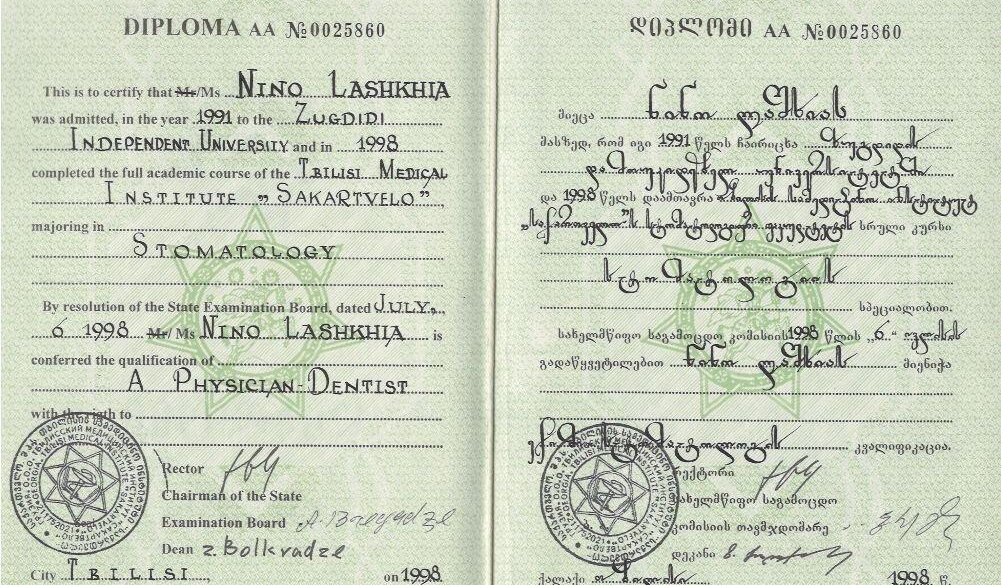 DIPLOMA AA №0025860
This is to certify that Mr/Ms NINO LASHKHIA
was admitted, in the year 1991 to the ZUGDIDI
INDEPENDENT UNIVERSITY and in 1998
completed the full academic course of the TBILISI MEDICAL
INSTITUTE „SAKARTVELO”
majoring in
STOMATOLOGY
By resolution of the State Examination Board, dated JULY,
6 1998 Mr/ Ms NINO LASHKHIA is
conferred the qualification of
A PHYSICIAN-DENTIST
with the rigth to
Rector
Chairman of the State
Examination Board
Dean Z. Bolkvadze
City TBILISI, on 1998
დიპლომი AA №0025860
მიეცა ნინო ლაშხიას
მასზედ, რომ იგი 1991 წელს ჩაირიცხა ზუგდიდის
დამოუკიდებელ უნივერსიტეტში
და 1998 წელს დაამთავრა თბილისის სამედიცინო ინსტიტუტ
„საქართველო"ს სტომატოლოგიური ფაკულტეტის სრული კურსი
სტომატოლოგიის
სპეციალობით.
სახელმწიფო საგამოცდო კომისიის 1998 წლის „6" ივლისის
გადაწყვეტილებით ნინო ლაშხიას მიენიჭა
ექიმ სტომატოლოგის
კვალიფიკაცია.
რექტორი
სახელმწიფო საგამოცდო
კომისიის თავმჯდომარე
დეკანი
ქალაქი თბილისი 1998 წ.